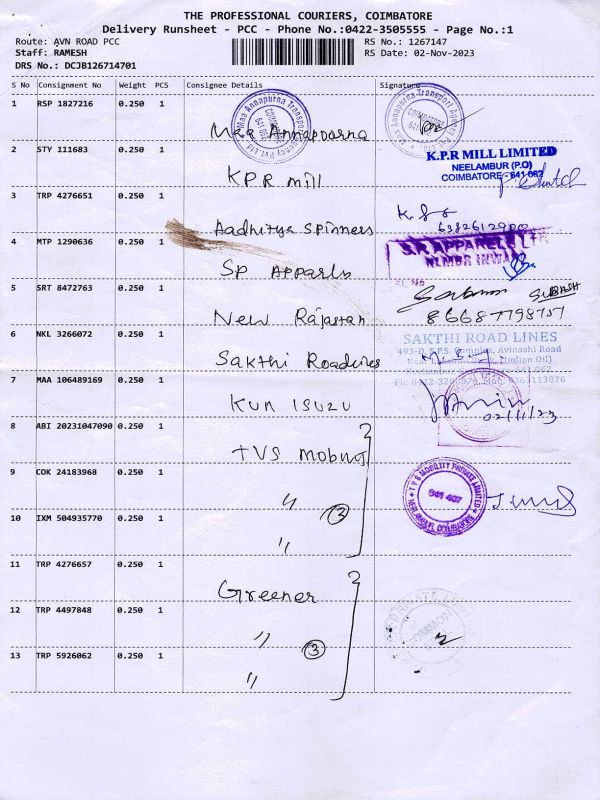 THE PROFESSIONAL COURIERS, COIMBATORE
Delivery Runsheet - PCC - Phone No.:0422-3505555 - Page No.:1
Route: AVN ROAD PCC RS No.: 1267147
Staff: RAMESH RS Date: 02-Nov-2023
DRS No.: DCJB126714701
S No Consignment No Weight PCS Consignee Details Signature
1 RSP 1827216 0.250 1 Maa Annapourna
2 STY 111683 0.250 1 K.P.R mill
K.P.R MILL LIMITED
NEELAMBUR (P.O)
COIMBATORE - 641 062
3 TRP 4276651 0.250 1 Aadhitya Spinners
4 MTP 1290636 0.250 1 SP Apparls
S.P. APPARELS LTD
NLMBR INWARD
5 SRT 8472763 0.250 1 New Rajastan
SUBASH
6 NKL 3266072 0.250 1 Sakthi Roadlines
SAKTHI ROAD LINES
493-D, S.P.S. Complex, Avinashi Road
7 MAA 106489169 0.250 1 KUN ISUZU
02/11/23
8 ABI 20231047090 0.250 1 TVS Mobility
9 COK 24183968 0.250 1 "
TVS MOBILITY PRIVATE LIMITED
641 407
10 IXM 504935770 0.250 1 " 3
11 TRP 4276657 0.250 1 Greener
12 TRP 4497848 0.250 1 " 3
13 TRP 5926062 0.250 1 "